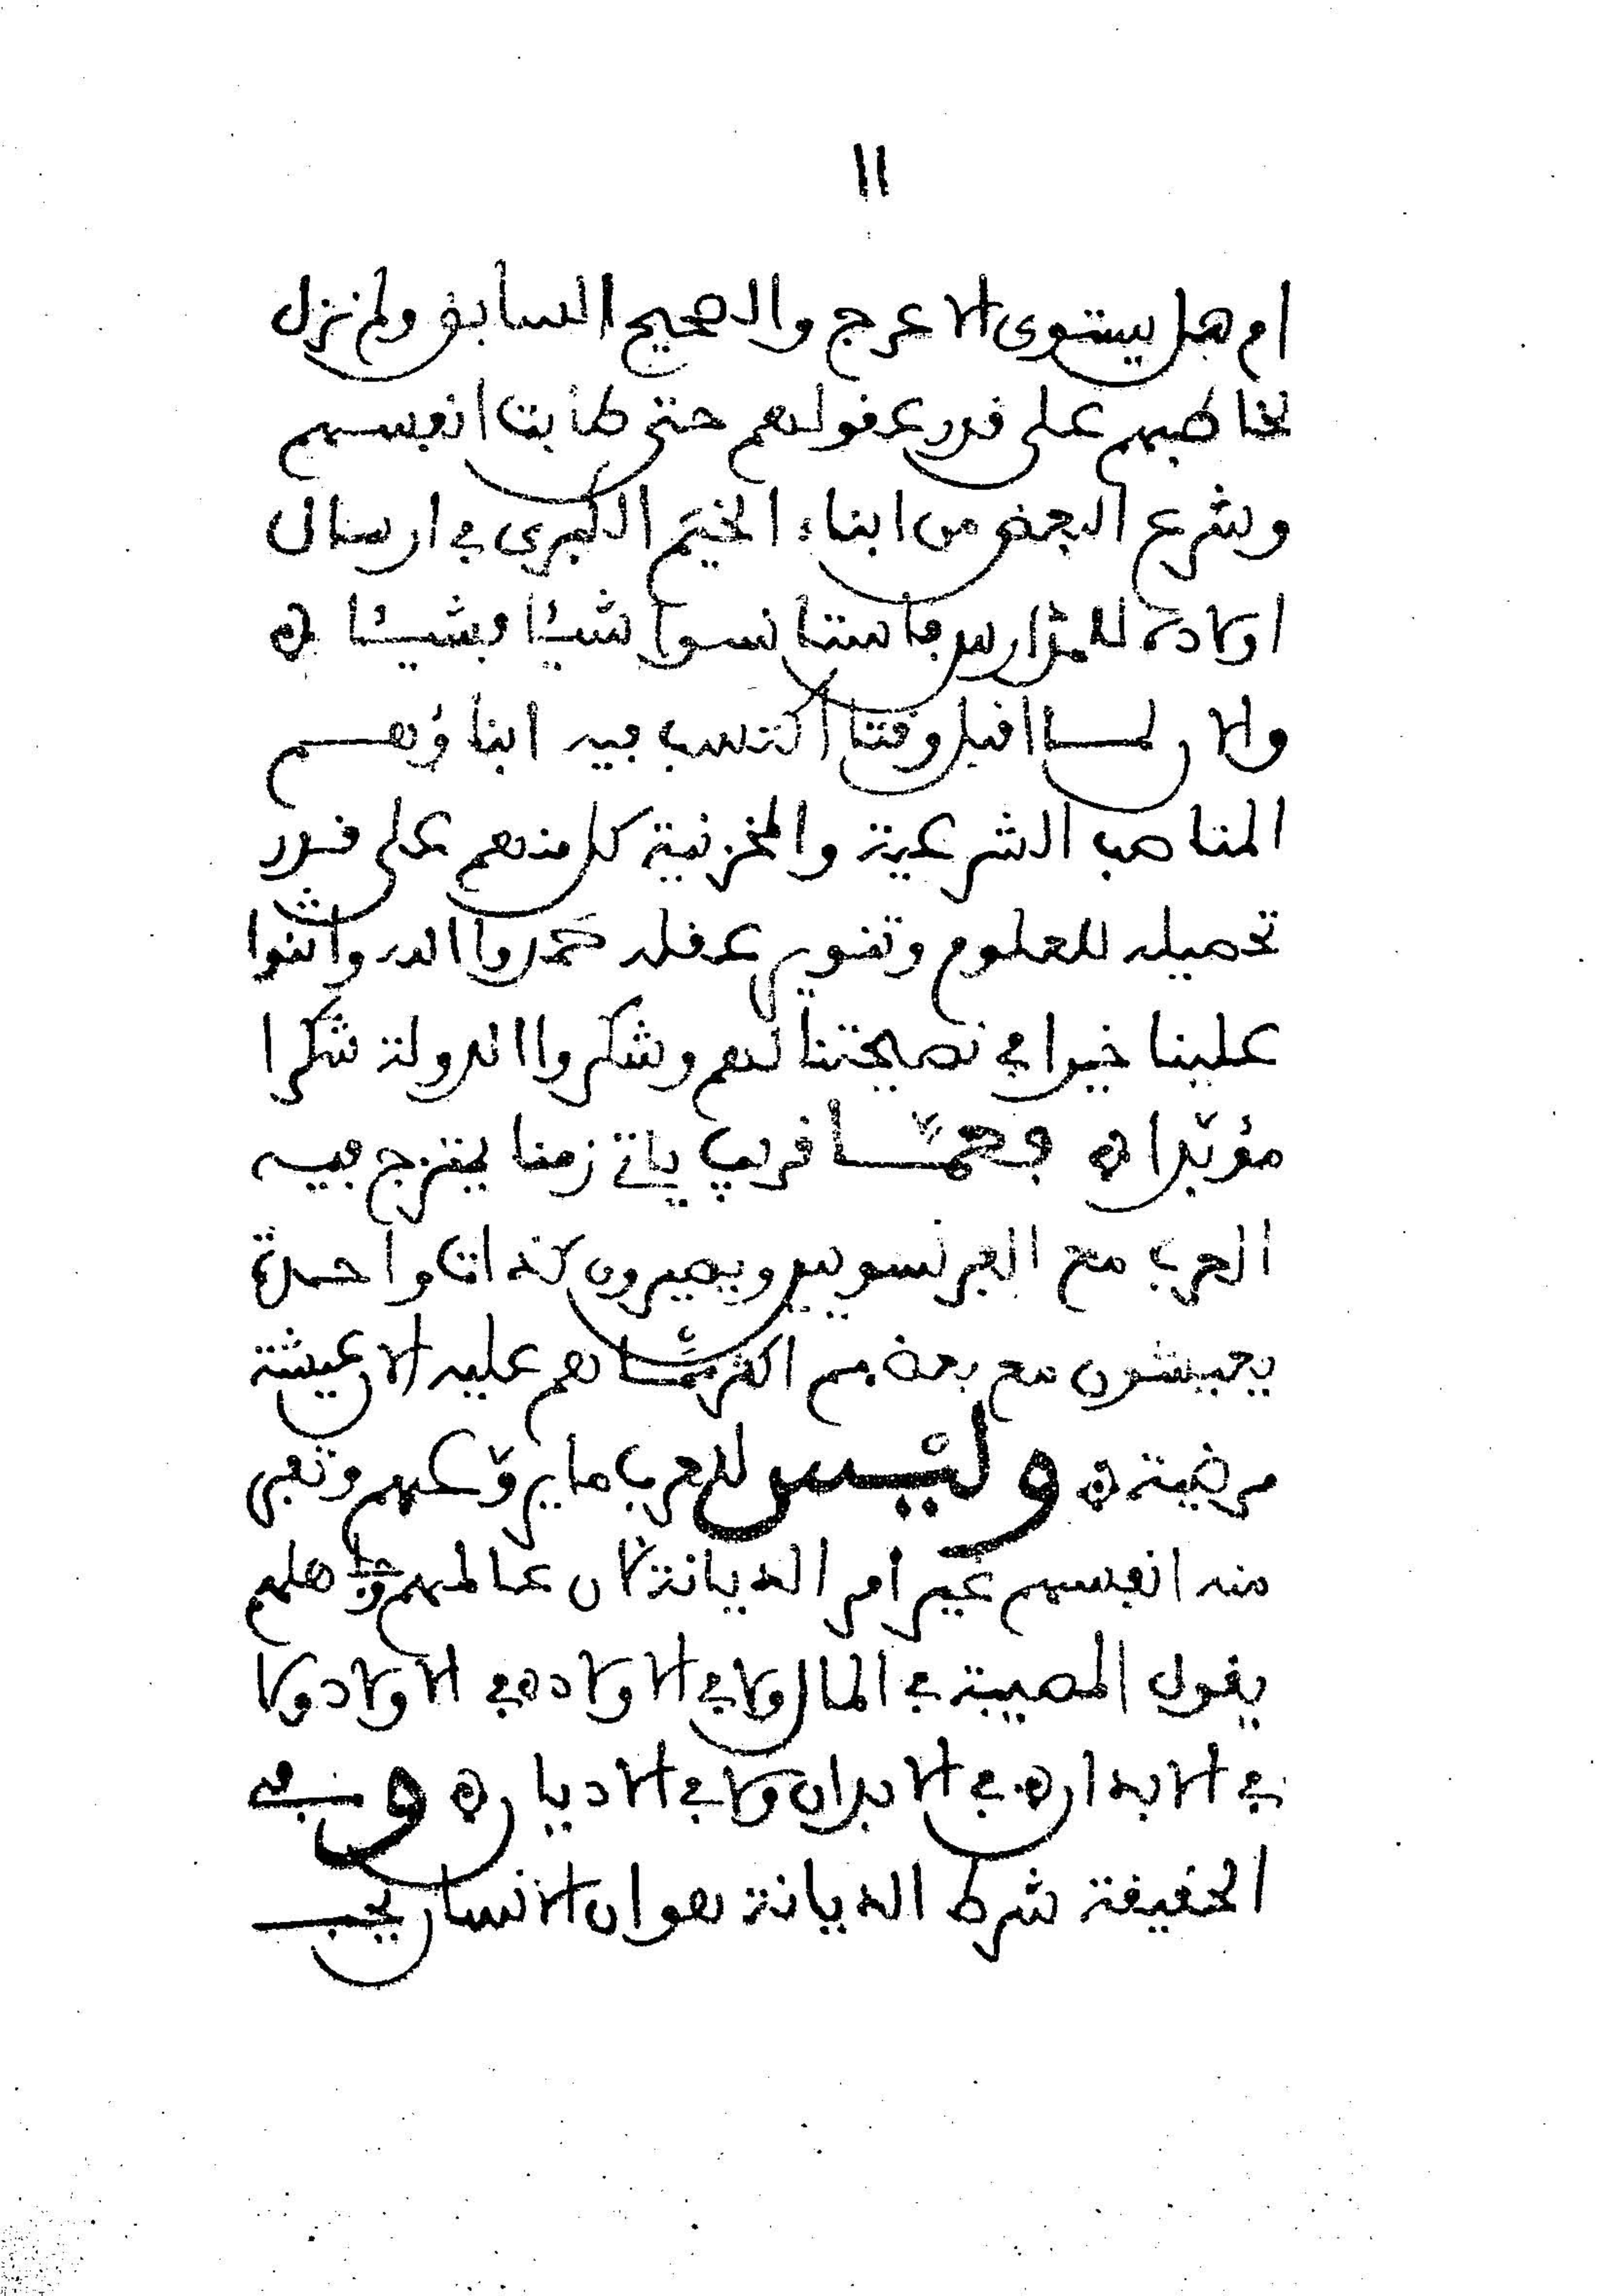 11
ام هل يستوى الاعرج والصحيح السابق ولم نزل
نخاطبهم على قدر عقولهم حتى طابت انفسهم
وشرع البعض من ابناء الخيم الكبرى في ارسال
اولاده للمدارس فاستانسوا شيئا فشيئا ه
والان لمـا اقبل وقتا اكتسب فيه ابناؤهم
المناصب الشرعية والمخزنية كل منهم على قدر
تحصيله للعلوم وتنوير عقله حمدوا الله واثنوا
علينا خيرا في نصيحتنا لهم وشكروا الدولة شكرا
مؤبدا ه فحمـا قريب ياتي زمنا يمتزج فيه
العرب مع الفرنسويين ويصيرون كذات واحدة
يعيشون مع بعضهم اكثر مما هم عليه الان عيشة
مرضية ه وليس للعرب ما يروعهم وتفجى
منه انفسهم غير امر الديانة لان عالمهم وجاهلهم
يقول المصيبة في المال ولا في الاولاد ه في الاولاد ولا
في الابدان ه في الابدان ولا في الاديان ه وفي
الحقيقة شرط الديانة هو ان الانسان يجب